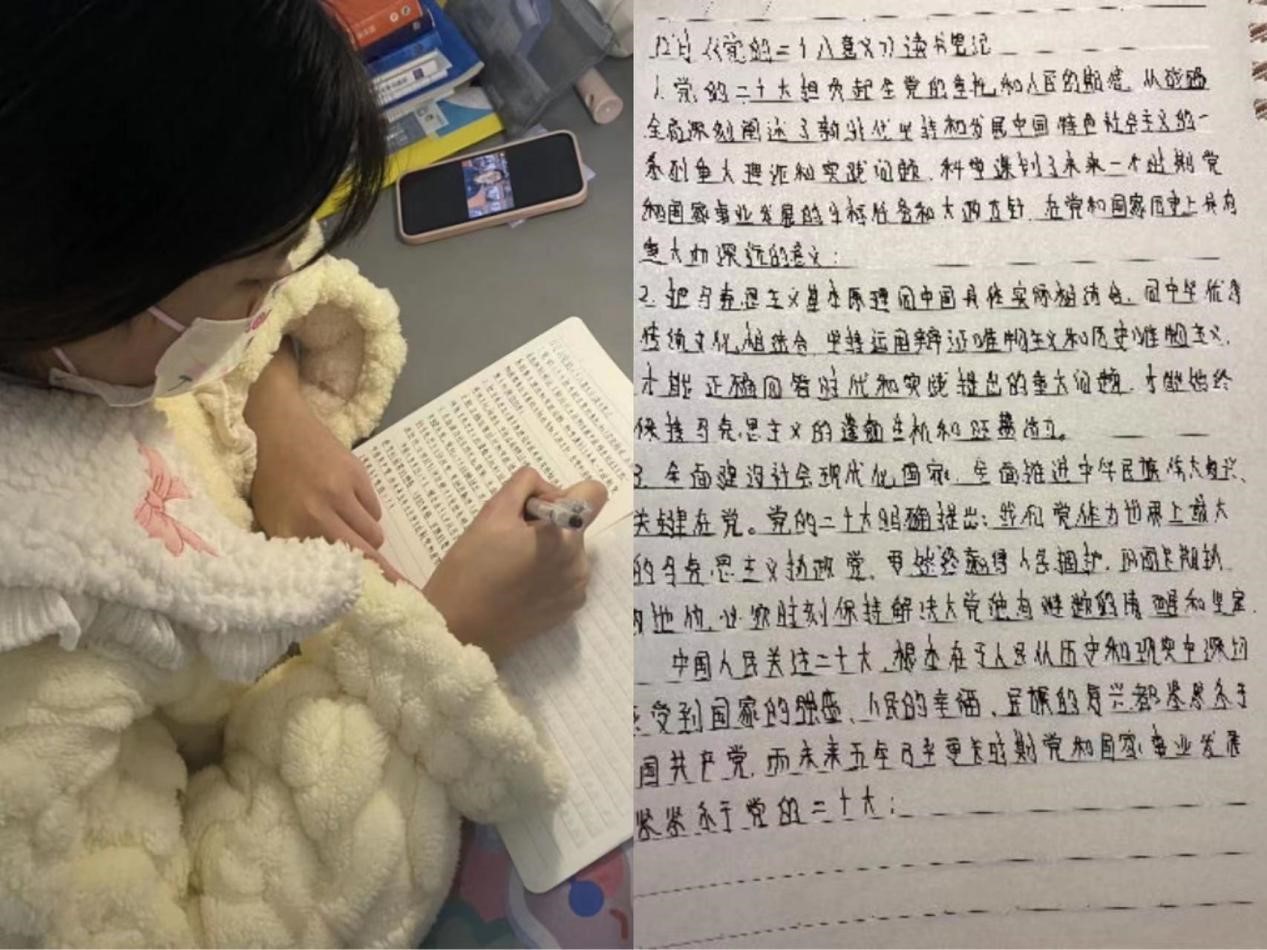 《党的二十大意义》读书笔记
1. 党的二十大担负起全党的重托和人民的期待, 从战略
全局深刻阐述了新时代坚持和发展中国特色社会主义的一
系列重大理论和实践问题, 科学谋划了未来一个时期党
和国家事业发展的目标任务和大政方针, 在党和国家历史上具有
重大而深远的意义;
2. 把马克思主义基本原理同中国具体实际相结合, 同中华优秀
传统文化相结合, 坚持运用辩证唯物主义和历史唯物主义,
才能正确回答时代和实践提出的重大问题, 才能始终
保持马克思主义的蓬勃生机和旺盛活力。
3. 全面建设社会现代化国家, 全面推进中华民族伟大复兴、
关键在党。党的二十大明确提出: 我们党作为世界上最大
的马克思主义执政党, 要始终赢得人民拥护, 巩固长期执
地位, 必须时刻保持解决大党独有难题的清醒和坚定.
中国人民关注二十大, 根本在于人民从历史和现实中深切
受到国家的强盛、人民的幸福、民族的复兴都紧紧系于
国共产党, 而未来五年乃至更长时期党和国家事业发展
紧紧系于党的二十大;